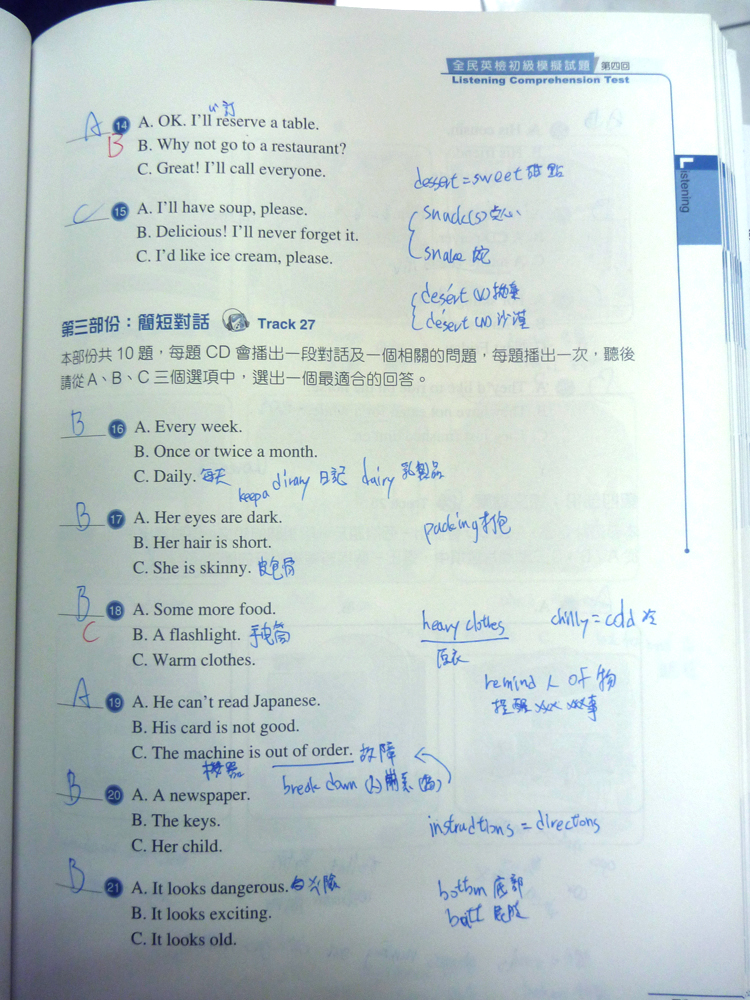 全民英檢初級模擬試題 第四回
Listening Comprehension Test
Listening
訂
A 14 A. OK. I'll reserve a table.
B B. Why not go to a restaurant?
C. Great! I'll call everyone.
dessert = sweet 甜點
C 15 A. I'll have soup, please.
snack(s) 点心
B. Delicious! I'll never forget it.
snake 蛇
C. I'd like ice cream, please.
desért (v) 拋棄
désert (n) 沙漠
第三部份：簡短對話 Track 27
本部份共 10 題，每題 CD 會播出一段對話及一個相關的問題，每題播出一次，聽後
請從 A、B、C 三個選項中，選出一個最適合的回答。
B 16 A. Every week.
B. Once or twice a month.
C. Daily. 每天
keep a dirary 日記 dairy 乳製品
B 17 A. Her eyes are dark.
packing 打包
B. Her hair is short.
C. She is skinny. 皮包骨
B 18 A. Some more food.
heavy clothes chilly = cold 冷
C B. A flashlight. 手電筒
C. Warm clothes.
remind 人 of 物
提醒 xxx xxx事
A 19 A. He can't read Japanese.
B. His card is not good.
C. The machine is out of order. 故障
機器
break down (人)
B 20 A. A newspaper.
B. The keys.
instructions = directions
C. Her child.
B 21 A. It looks dangerous.
bottom 底部
B. It looks exciting.
butt 屁股
C. It looks old.